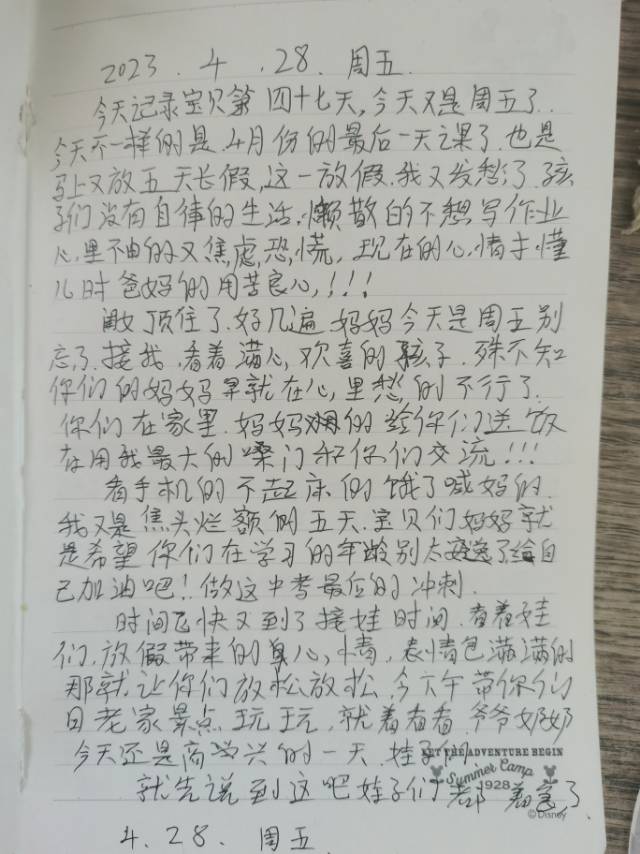 2023.4.28.周五.
今天记录宝贝第四十七天,今天又是周五了.
今天不一样的是.4月份的最后一天课了.也是
马上又放五天长假,这一放假.我又发愁了.孩
子们没有自律的生活.懒散的不想写作业
心里不由的又焦虑,恐慌,现在的心情才懂
儿时爸妈的用苦良心,!!!
叮住了.好几遍.妈妈今天是周五别
忘了.接我.看着满心欢喜的孩子.殊不知
你们的妈妈早就在心里愁的不行了.
你们在家里.妈妈的给你们送饭
在用我最大的嗓门和你们交流!!!
看手机的不起床的饿了喊妈的.
我又是焦头烂额的五天.宝贝们妈妈就
是希望你们在学习的年龄别太了给自
己加油吧!.做这中考最后的冲刺.
时间飞快又到了接娃时间.看着娃
们.放假带来的心情,表情包满满的
那就让你们放松放松,今下午带你们
回老家景点玩玩,就着看看.爷爷奶奶
今天还是高兴的一天.娃子们
就先说到这吧娃子们都着急了.
LET THE ADVENTURE BEGIN
Summer Camp
1928
©Disney
4.28.周五